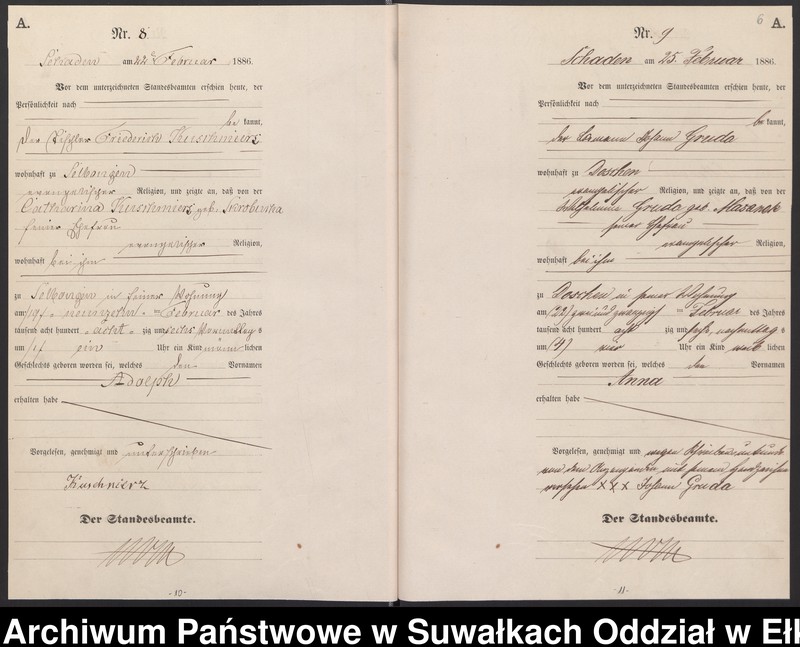 A.
Nr. 8.
Schaden am 22 Februar 1886.
Vor dem unterzeichneten Standesbeamten erschien heute, der
Persönlichkeit nach
be kannt,
der Tischler Friederich Kuschmierz
wohnhaft zu
evangelischer Religion, und zeigte an, daß von der
Catharina Kuschmierz geb. Skrobutta
seiner Ehefrau
evangelischer Religion,
wohnhaft bei ihm
zu in seiner Wohnung
am 19 neunzehn Februar des Jahres
tausend acht hundert acht zig und sechs Vormittags
um ein Uhr ein Kind männlichen
Geschlechts geboren worden sei, welches den Vornamen
Adolph
erhalten habe
Vorgelesen, genehmigt und unterschrieben
Kuschnierz
Der Standesbeamte.
-10-
6 A.
Nr. 9
Schaden am 25. Februar 1886.
Vor dem unterzeichneten Standesbeamten erschien heute, der
Persönlichkeit nach
be kannt,
der Losmann Johann Gruda
wohnhaft zu Doschen
evangelischer Religion, und zeigte an, daß von der
Wilhelmine Gruda geb. Masanek
seiner Ehefrau
evangelischer Religion,
wohnhaft bei ihm
zu Doschen in seiner Wohnung
am (22) zwei und zwanzig Februar des Jahres
tausend acht hundert acht zig und sechs, nachmittags
um (4) vier Uhr ein Kind weib lichen
Geschlechts geboren worden sei, welches den Vornamen
Anna
erhalten habe
Vorgelesen, genehmigt und wegen Schreibensunkunde
von dem Anzeigenden mit seinem Handzeichen
versehen XXX Johann Gruda
Der Standesbeamte.
-11-
Archiwum Państwowe w Suwałkach Oddział w Ełk